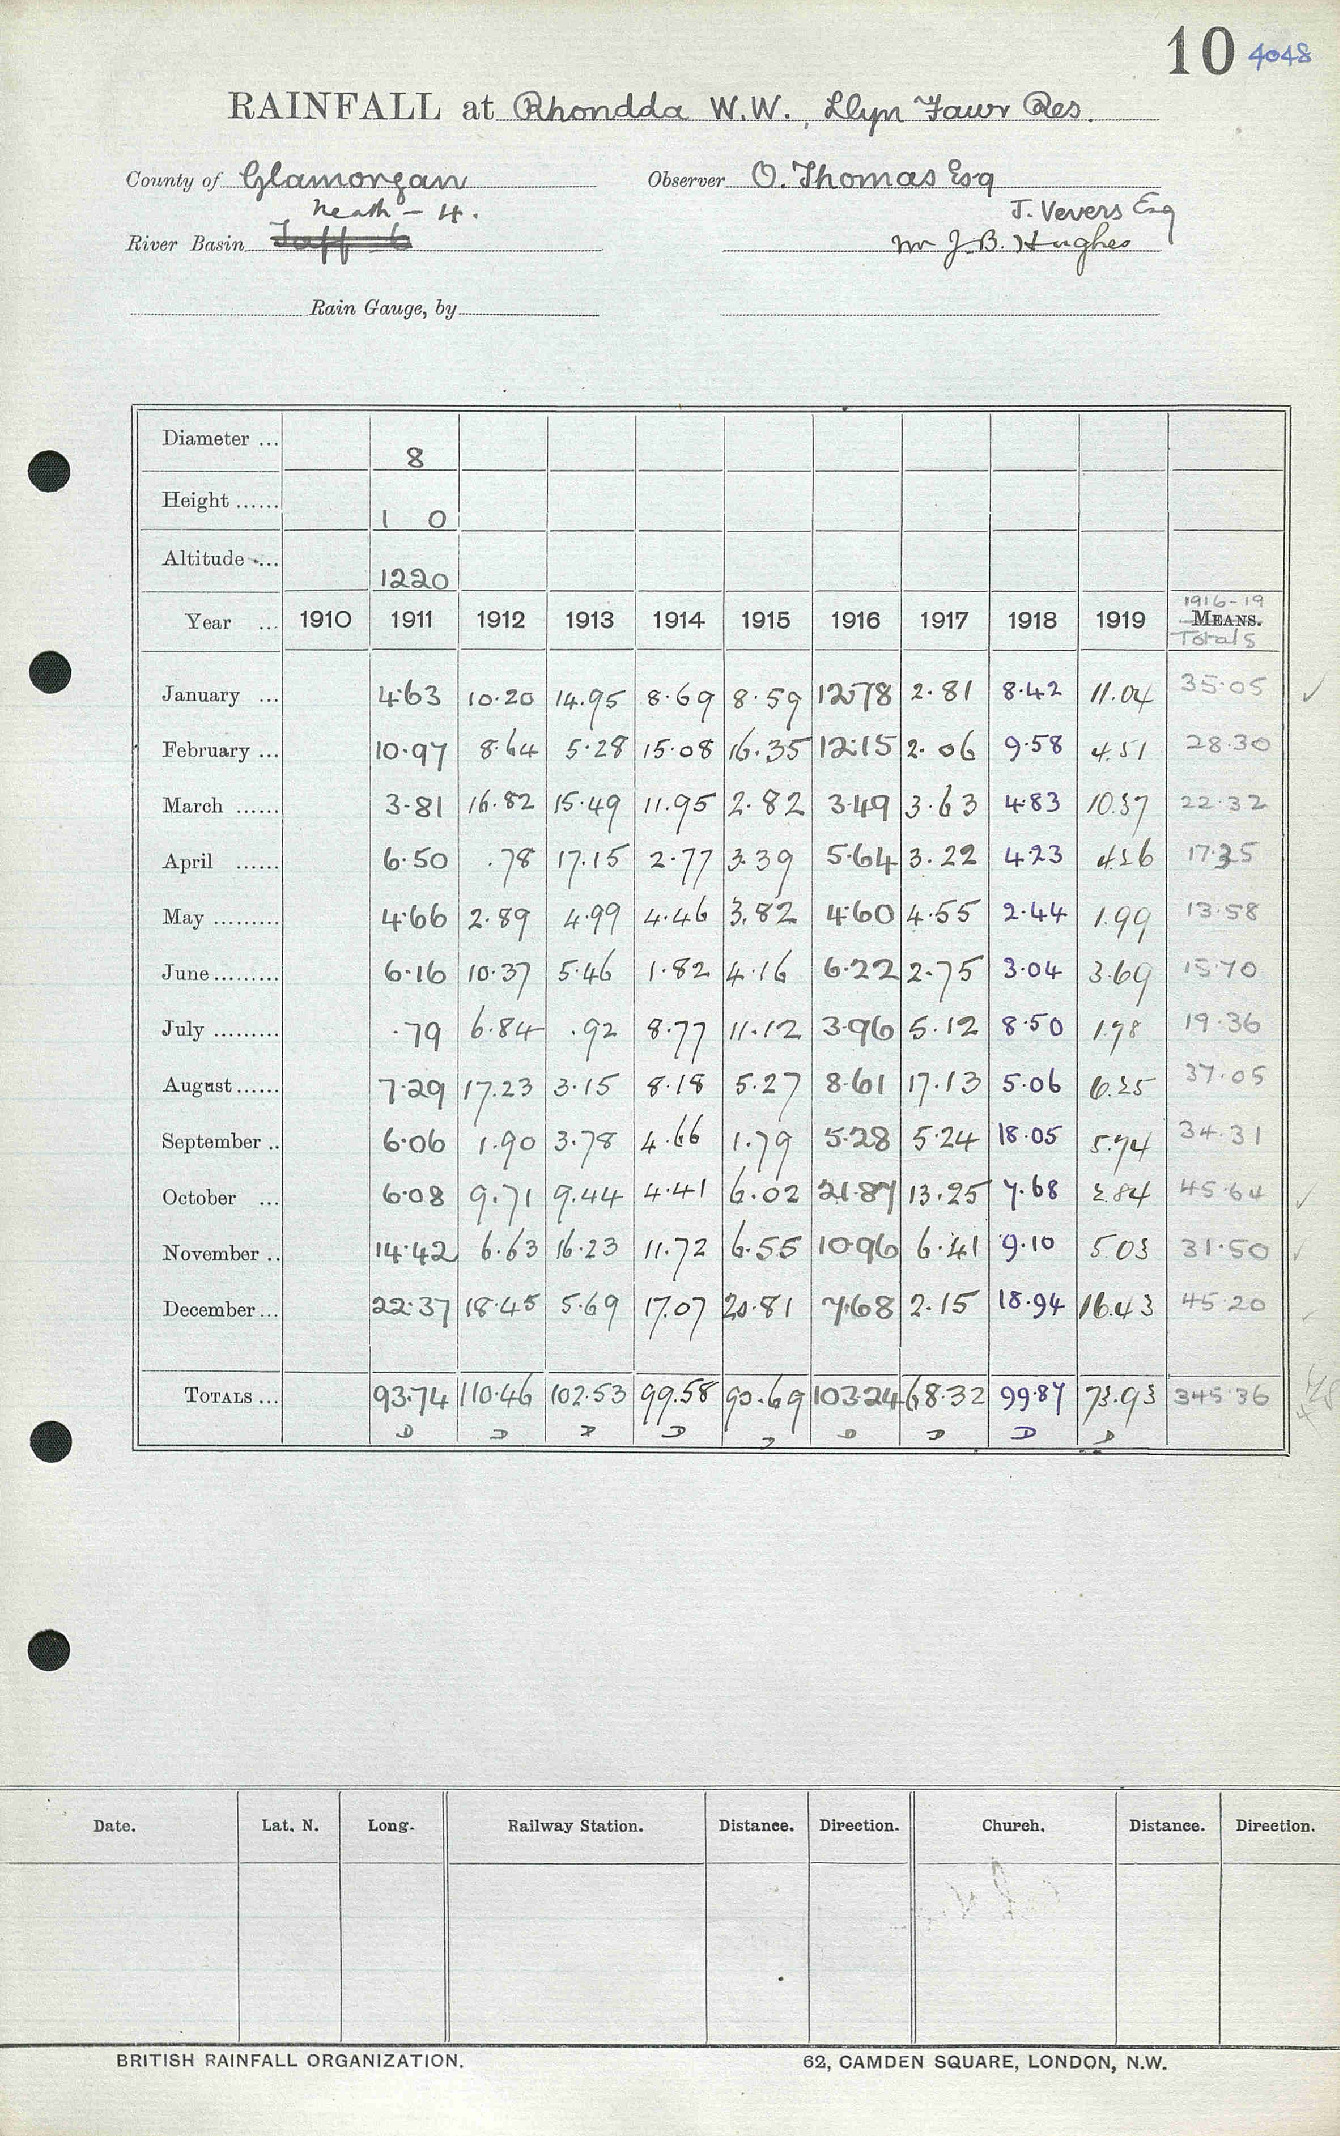 10 4048
RAINFALL at Rhondda W.W., Llyn Fawr Res.
County of Glamorgan Observer O. Thomas Esq
Neath - 4. J. Vevers Esq
River Basin Taff 6 Mr J.B. Hughes
Rain Gauge, by
Diameter ... 8
Height ...... 1 0
Altitude .... 1220
1916-19
Year ... 1910 1911 1912 1913 1914 1915 1916 1917 1918 1919 MEANS.
Totals
January ... 4.63 10.20 14.95 8.69 8.59 12.78 2.81 8.42 11.04 35.05 ✓
February ... 10.97 8.64 5.28 15.08 16.35 12.15 2.06 9.58 4.51 28.30
March ...... 3.81 16.82 15.49 11.95 2.82 3.49 3.63 4.83 10.37 22.32
April ...... 6.50 .78 17.15 2.77 3.39 5.64 3.22 4.23 4.26 17.35
May ......... 4.66 2.89 4.99 4.46 3.82 4.60 4.55 2.44 1.99 13.58
June ......... 6.16 10.37 5.46 1.82 4.16 6.22 2.75 3.04 3.69 15.70
July ......... .79 6.84 .92 8.77 11.12 3.96 5.12 8.50 1.78 19.36
August ...... 7.29 17.23 3.15 8.18 5.27 8.61 17.13 5.06 6.25 37.05
September .. 6.06 1.90 3.78 4.66 1.79 5.28 5.24 18.05 5.74 34.31
October ... 6.08 9.71 9.44 4.41 6.02 21.87 13.25 7.68 2.84 45.64 ✓
November .. 14.42 6.63 16.23 11.72 6.55 10.96 6.41 9.10 5.03 31.50 ✓
December ... 22.37 18.45 5.69 17.07 20.81 7.68 2.15 18.94 16.43 45.20
TOTALS ... 93.74 110.46 102.53 99.58 90.69 103.24 68.32 99.87 73.93 345.36
D D D D D D D D D
Date. Lat. N. Long. Railway Station. Distance. Direction. Church. Distance. Direction.
BRITISH RAINFALL ORGANIZATION. 62, CAMDEN SQUARE, LONDON, N.W.